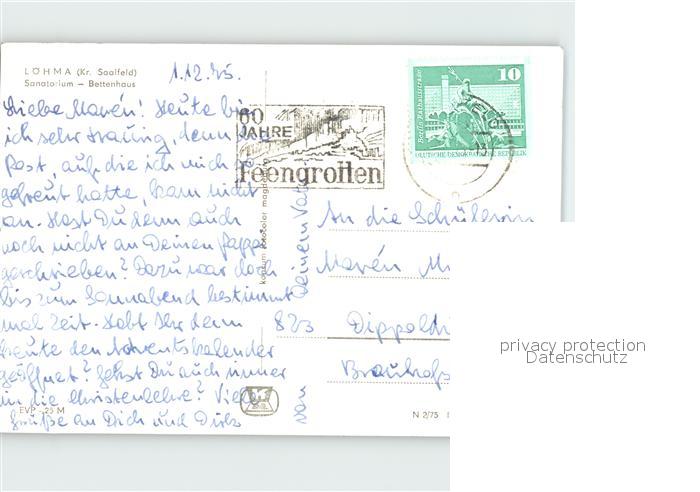 LÖHMA (Kr. Saalfeld)
Sanatorium – Bettenhaus
1.12.75.
Liebe Marén! Heute bin
ich sehr traurig, denn
Post, auf die ich mich so
gefreut hatte, kam nicht
an. Hast Du denn auch
noch nicht an Deinen Pappa
geschrieben? Dazu war doch
bis zum Sonnabend bestimmt
mal Zeit. Habt Ihr denn
heute den Adventskalender
geöffnet? Gehst Du auch immer
in die Christenlehre? Viele
Grüße an Dich und
von Deinem Vati
EVP -,25 M
60
JAHRE
Feengrotten
10
Berlin, Rathausstraße
DEUTSCHE DEMOKRATISCHE REPUBLIK
An die Schülerin
Marén
823 Dippoldi
Brauhofs
N 2/75
privacy protection
Datenschutz